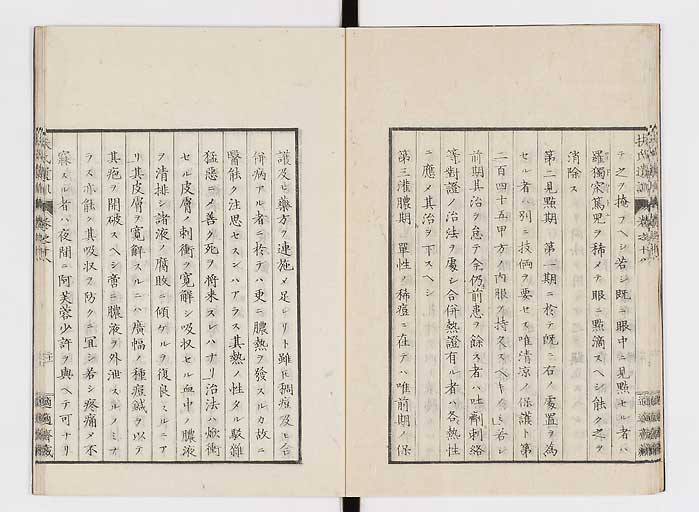 テ之ヲ掩フヘシ若シ既ニ眼中ニ見點セル者ハ
羅獨家篤兒ヲ稀メテ眼ニ點滴スヘシ能ク之ヲ
消除ス
第二見點期 第一期ニ於テ既ニ右ノ處置ヲ為
セル者ハ別ニ技倆ヲ要セス唯清凉ノ保護ト第
二百四十五甲方ノ内服ヲ持久スヘキノミ若シ
前期其治ヲ怠テ全仍前患ヲ餘ス者ハ吐劑刺絡
等對證ノ治法ヲ處シ合併熱證有ル者ハ各熱性
ニ應メ其治ヲ下スヘシ
第三灌膿期 單性ノ稀痘ニ在テハ唯前期ノ保
護及ヒ藥方ヲ連施メ足レリト雖ヒ稠痘及ヒ合
併病アル者ニ於テハ更ニ膿熱ヲ發スルカ故ニ
醫能ク注思セスンハアラス其熱ノ性タル駁雜
猛惡ニノ善ク死ヲ將来スレハナリ治法ハ焮衝
セル皮膚ノ刺衝ヲ寛解シ吸収セル血中ノ膿液
ヲ清排シ諸液ノ腐敗ニ傾ケルヲ復良スルニア
リ其皮膚ヲ寛解スルニハ廣幅ノ種痘鍼ヲ以テ
其疱ヲ開破スヘシ啻ニ膿液ヲ外泄スルノミナ
ラス亦能ク其吸収ヲ防クニ宜シ若シ疼痛メ不
寐スル者ハ夜間ニ阿芙蓉少許ヲ與ヘテ可ナリ
扶氏遺訓 卷之十八
適適齋藏